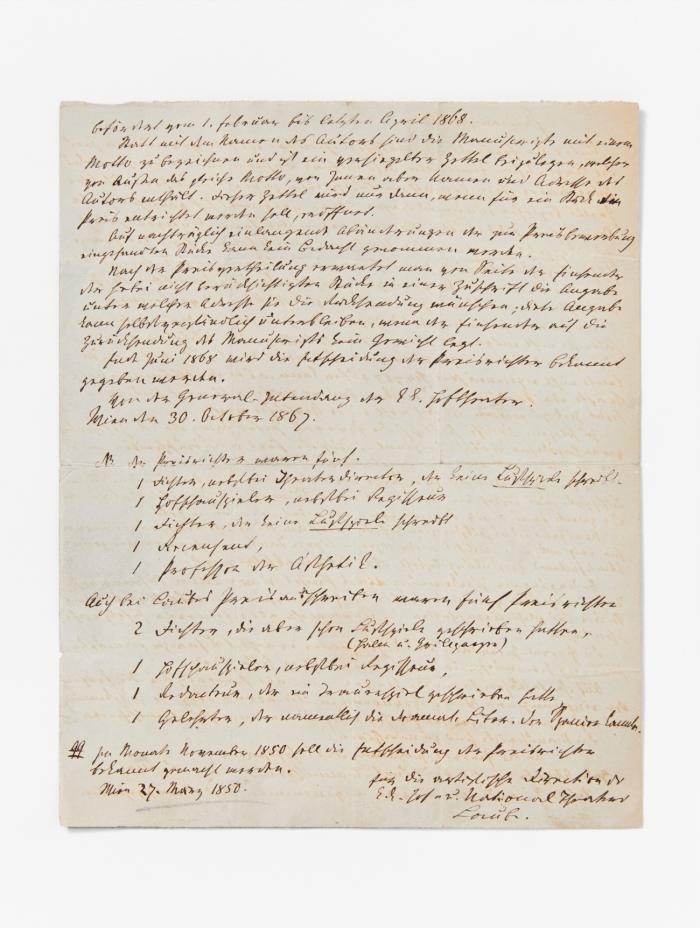 befördert vom 1. Februar bis letzten April 1868.
Statt mit dem Namen des Autors sind die Manuscripte mit einem
Motto zu bezeichnen und ist ein versiegelter Zettel beizulegen, welcher
von Außen das gleiche Motto, von Innen aber Namen und Adresse des
Autors enthält. Dieser Zettel wird nur dann, wenn für ein Stück ein
Preis entrichtet werden soll, eröffnet.
Auf nachträglich einlangende Abänderungen der zur Preisbewerbung
eingesandten Stücke kann kein Bedacht genommen werden.
Nach der Preisvertheilung erwartet man von Seite der Einsender
der hebei nicht berücksichtigten Stücke in einer Zuschrift die Angabe
unter welcher Adresse sie die Rücksendung wünschen; diese Angabe
kann selbstverständlich unterbleiben, wenn der Einsender auf die
Zurücksendung des Manuscripts kein Gewicht legt.
Ende Juni 1868 wird die Entscheidung der Preisrichter bekannt
gegeben werden.
Von der General-Intendanz der k k. Hoftheater.
Wien den 30. October 1867.
NB der Preisrichter waren fünf.
1 Dichter, nebstbei Theaterdirector, der keine Lustspiele schreibt.
1 Hofschauspieler, nebstbei Regisseur
1 Dichter, der keine Lustspiele schreibt
1 Recensent,
1 Professor der Ästhetik.
Auch bei Laubes Preisausschreiben waren fünf Preisrichter
2 Dichter, die aber schon Lustspiele geschrieben hatten,
(Halm u. Grillparzer)
1 Hofschauspieler, nebstbei Regisseur,
1 Redacteur, der ein Trauerspiel geschrieben hatte
1 Gelehrter, der namentlich die dramat. Liter. der Spanier kannte.
Im Monate November 1850 soll die Entscheidung der Preisrichter
bekannt gemacht werden.
Wien 27. März 1850.
für die artistische Direction des
k.k. Hof- u. National Theaters
Laube.